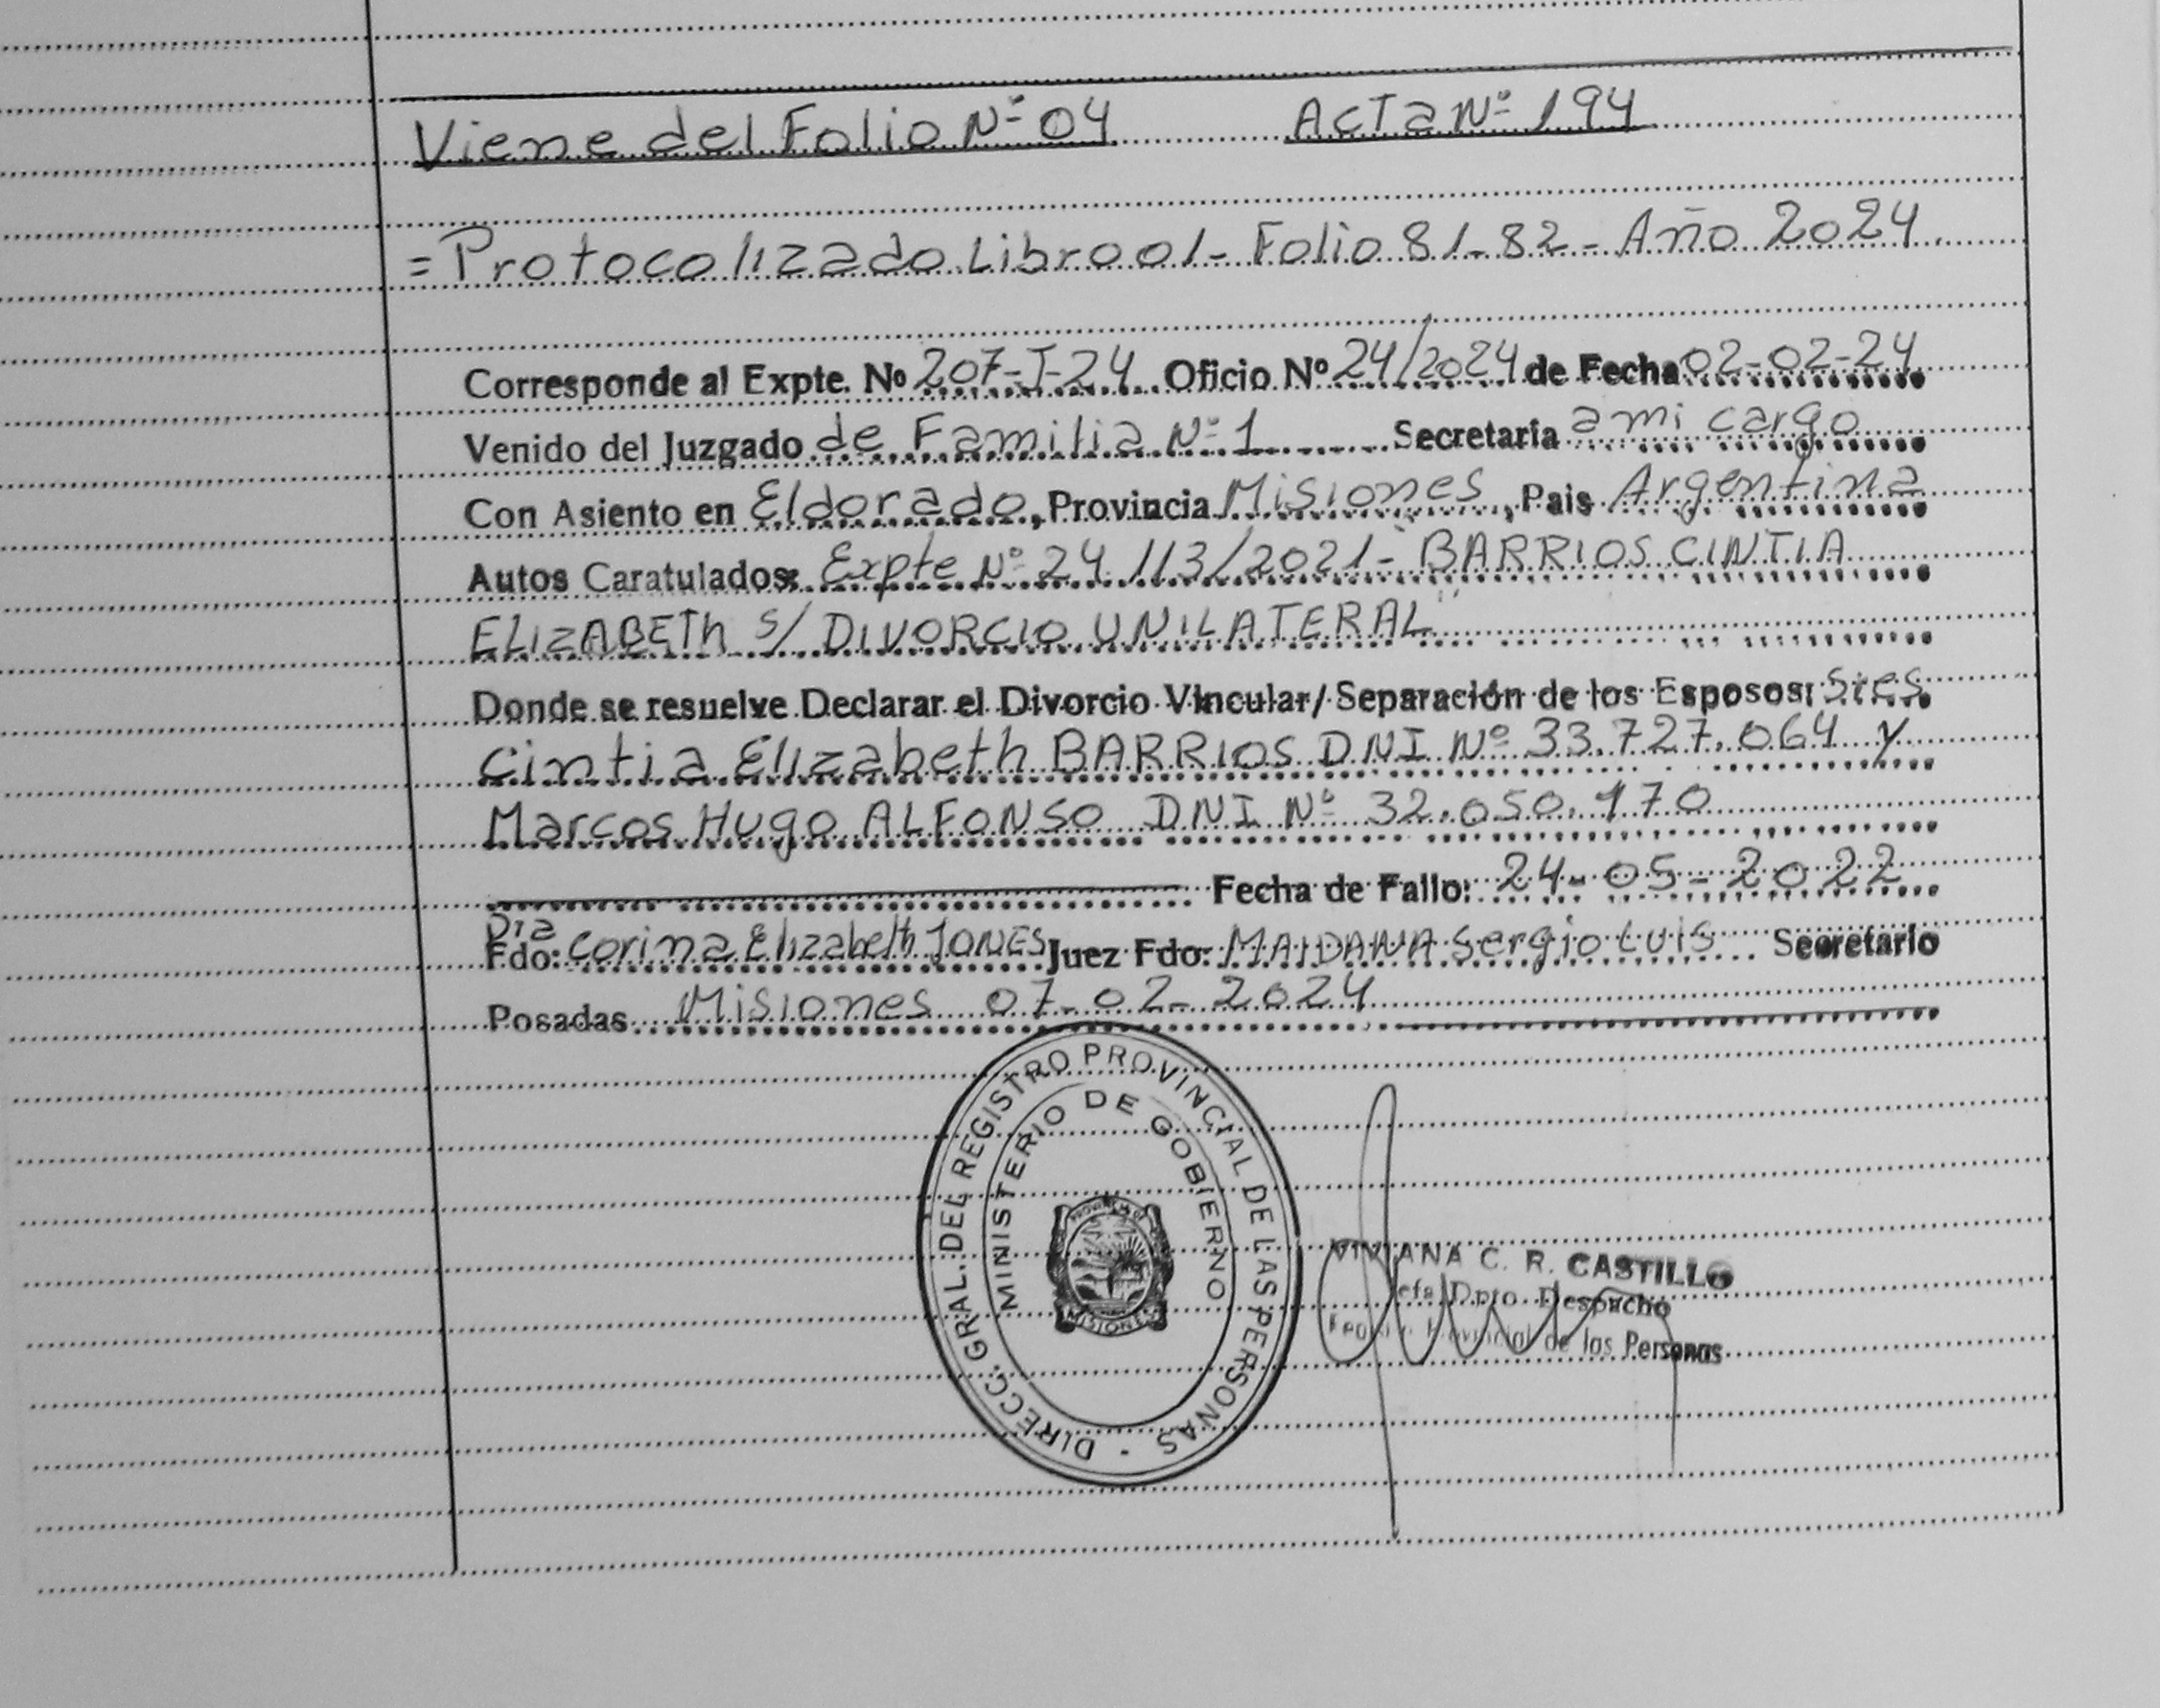 Viene del Folio Nº 04 Acta Nº 194
= Protocolizado Libro 01 - Folio 81-82 - Año 2024.
Corresponde al Expte. Nº 207-J-24 Oficio Nº 24/2024 de Fecha 02-02-24
Venido del Juzgado de Familia Nº 1 Secretaría a mi cargo
Con Asiento en Eldorado, Provincia Misiones, Pais Argentina
Autos Caratulados: Expte Nº 24113/2021 - BARRIOS CINTIA
ELIZABETh s/ DIVORCIO UNILATERAL"
Donde se resuelve Declarar el Divorcio Vincular/ Separación de los Esposos: Sres
Cintia Elizabeth BARRIOS DNI Nº 33.727.064 y
Marcos Hugo ALFONSO DNI Nº 32.050.170
Fecha de Fallo: 24-05-2022
Dra
Fdo: Corina Elizabeth JONES Juez Fdo: MAIDANA Sergio Luis Secretario
Posadas Misiones 07-02-2024
DIRECC. GRAL. DEL REGISTRO PROVINCIAL DE LAS PERSONAS -
MINISTERIO DE GOBIERNO
PROVINCIA DE
MISIONES
VIVIANA C. R. CASTILLO
Jefa Dpto. Despacho
Provincial de las Personas